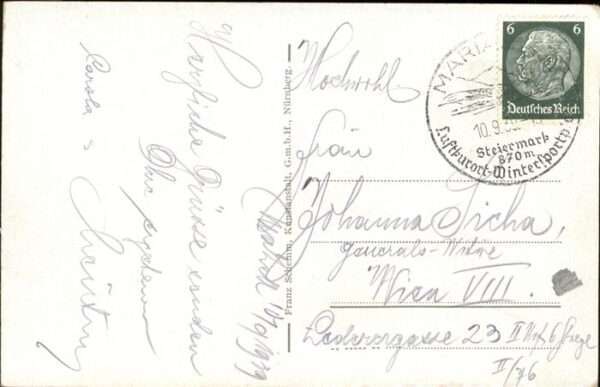 Herzliche Grüsse senden
Carola &
Franz Schemm, Kunstanstalt, G.m.b.H., Nürnberg.
6 6
Deutsches Reich
MARIA
10.9.39
Steiermark
870 m
Luftkurort-Wintersportpl
Hochwohl
Frau
Johanna Sicha,
Generals-Witwe
Wien VIII.
Lederergasse 23 II
II/